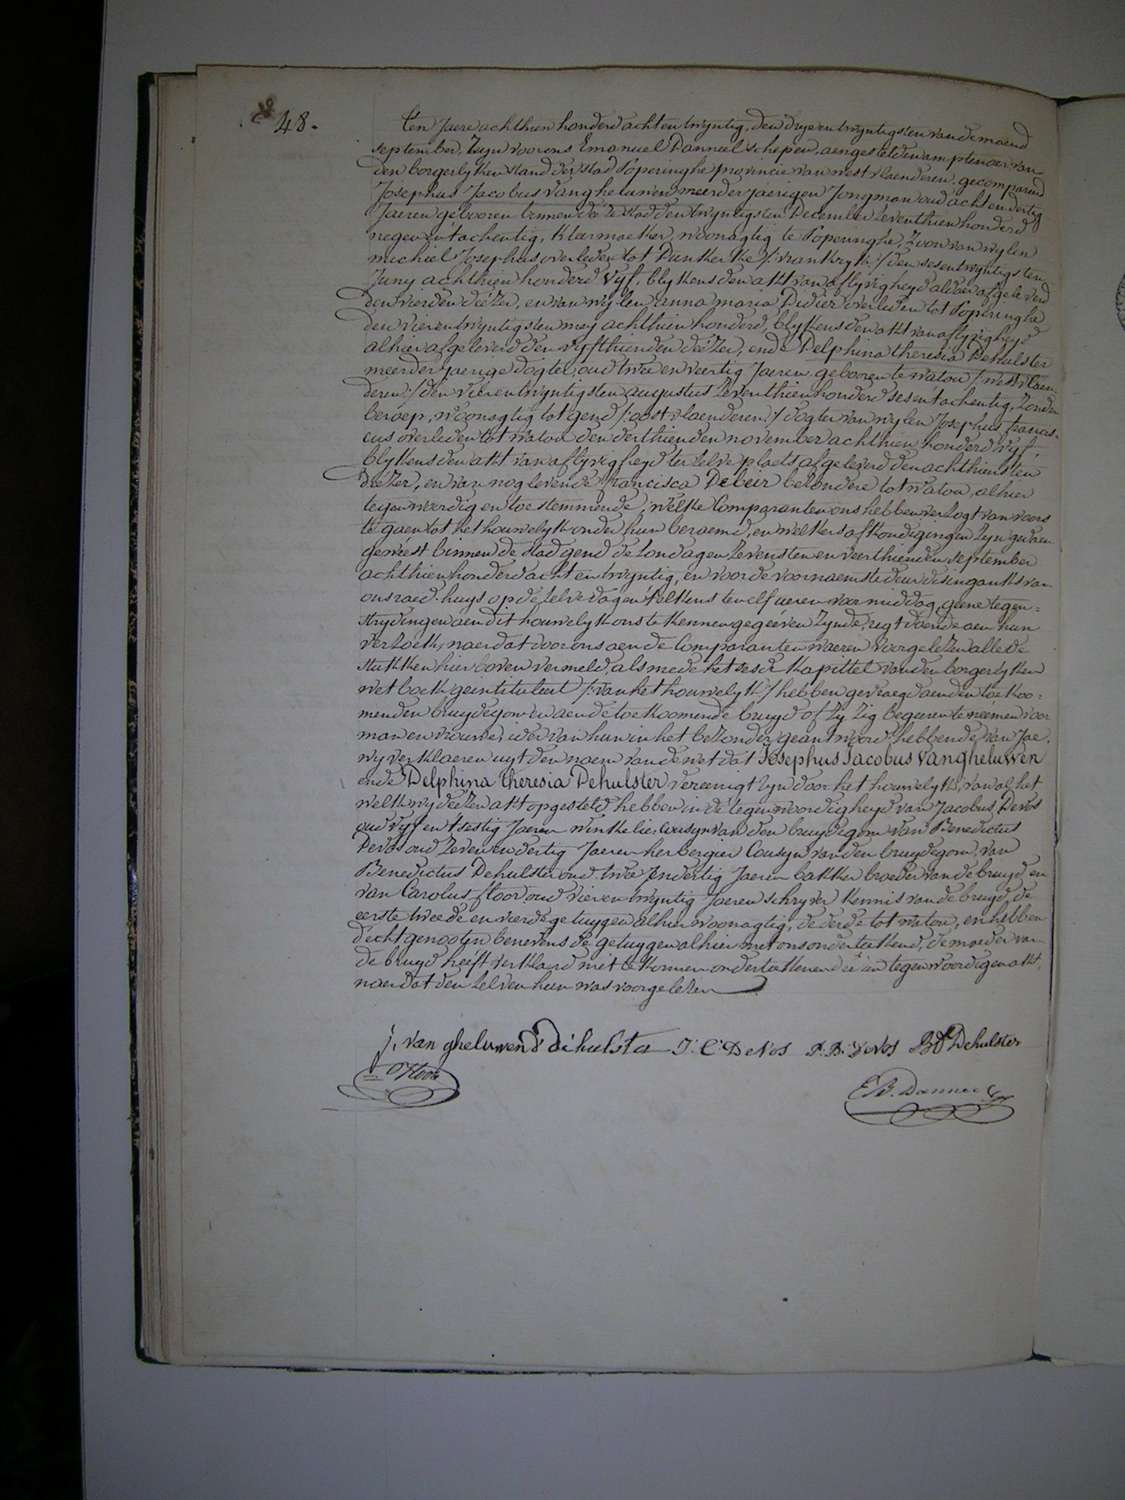 48.
Ten Jaere achthien honderd achtentwyntig, den dryentwyntigsten van de maend
september, zyn voor ons Emanuel Danneel schepen, aengestelden amptenaer van
den borgerlyken stand der stad Poperinghe provincie van westvlaenderen, gecompareerd
Josephus Jacobus Vangheluwen meerderjaerigen Jongman oud achtendertig
Jaeren gebooren binnen deze stad den twyntigsten December zeventhien honderd
negenentachentig, klakmaeker, woonagtig te Poperinghe, zoon van wylen
michiel Josephus overleden tot Dunkerke /:vrankryk:/ den sesentwyntigsten
Juny achthien honderd vyf, blykens den akt van aflyvigheyd aldaer afgeleverd
den vierden dézer, en van wylen anna maria Didier overleden tot Poperinghe
den vierentwyntigsten mey achthien honderd, blykens den akt van aflyvigheyd
alhier afgeleverd den vyfthienden deézer, ende Delphina theresia Dehulster
meerderjaerige dogter, oud twee en veertig Jaeren gebooren te watou /:westvlaen-
deren:/ den vierentwyntigsten augustus zeventhien honderd sesentachentig, zonder
beroep, woonagtig tot gend /:oostvlaenderen:/ dogter van wylen Josephus francis-
cus overleden tot watou den derthienden november achthien honderd vyf,
blykens den akt van aflyvigheyd ter zelve plaets afgeleverd den achthiensten
deézer, en van nog levende francisca Debeir                        tot watou, alhier
tegenwoordig en toestemmende, welke Comparanten ons hebben verzogt van voors
te gaen tot het houwelyk onder hun beraemd, en welkers afkondigingen zyn gedaen
geweest binnen de stad gend de zondagen zevensten en veerthienden september
achthien honderd acht en twyntig, en voor de voornaemste deur des ingank van
ons raed-huys op de zelve dagen telkens ten elf ueren voor middag, geene tegen-
strydingen aen dit houwelyk ons te kennen gegeéven zynde, regt doende aen hun
verzoek, naer dat door ons aen de Comparanten waeren voorgelezen alle de
stukken hier boven vermeld, als mede het seste kapittel van den borgerlyken
wetboek geintituleert /:van het houwelyk:/ hebben gevraegd aen den toekoo-
menden bruydegom en aen de toekoomende bruyd of zy zig begeeren te neemen voor
man en vrouwe, ider van hun in het bezonder geantwoord hebbende van Jae,
wy verklaeren uyt den naem van de wet dat Josephus Jacobus Vangheluwen
ende Delphina theresia Dehulster vereenigt zyn door het houwelyk, van al het
welk wy deézen akt opgesteld hebben in de tegenwoordigheyd van Jacobus Devos
oud vyf en tsestig Jaeren winkelier Cousyn van den bruydegom van Benedictus
Devos oud zevenendertig Jaeren herbergier Cousyn van den bruydegom, van
Benedictus Dehulster oud twee endertig Jaeren bakker broeder van de bruyd, en
van Carolus floor oud vierentwyntig Jaeren schryver kennis van de bruyd, de
eerste tweede en vierde getuygen alhier woonagtig, de derde tot watou, en hebben
d'echtgenooten benevens de getuygen alhier met ons onderteekend, de moeder van
de bruyd heeft verklaerd niet te konnen onderteekenen dé in tegenwoordigen akt,
naer dat den zelven hun was voorgelezen
j. van gheluwen D dehulster J. C. DeVos P. B. DeVos Bd Dehulster
C floor
E B. Danneel